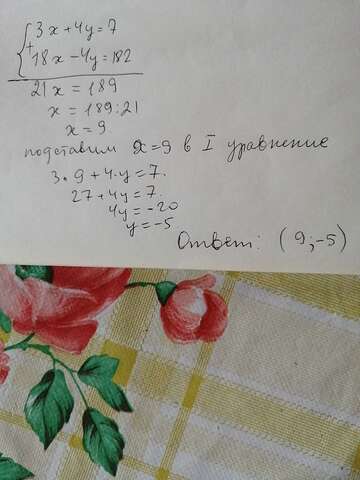 3x+4y=7
+
18x-4y=182
21x = 189
x = 189:21
x = 9
подставим x=9 в I уравнение
3•9+4•y=7.
27+4y=7.
4y=-20
y=-5
Ответ: (9;-5)